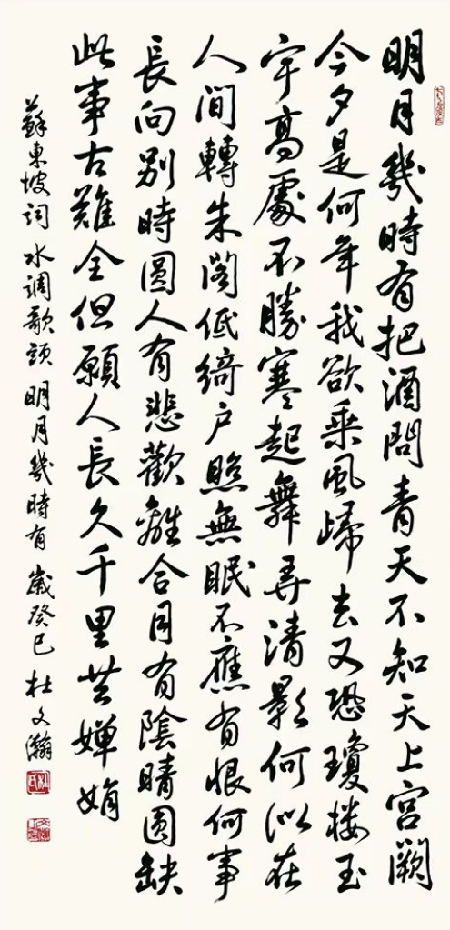 明月幾時有把酒問青天不知天上宮闕
今夕是何年我欲乘風歸去又恐瓊樓玉
宇高處不勝寒起舞弄清影何似在
人間轉朱閣低綺戶照無眠不應有恨何事
長向別時圓人有悲歡離合月有陰晴圓缺
此事古難全但願人長久千里共嬋娟
蘇東坡詞水調歌頭明月幾時有歲癸巳杜文瀚